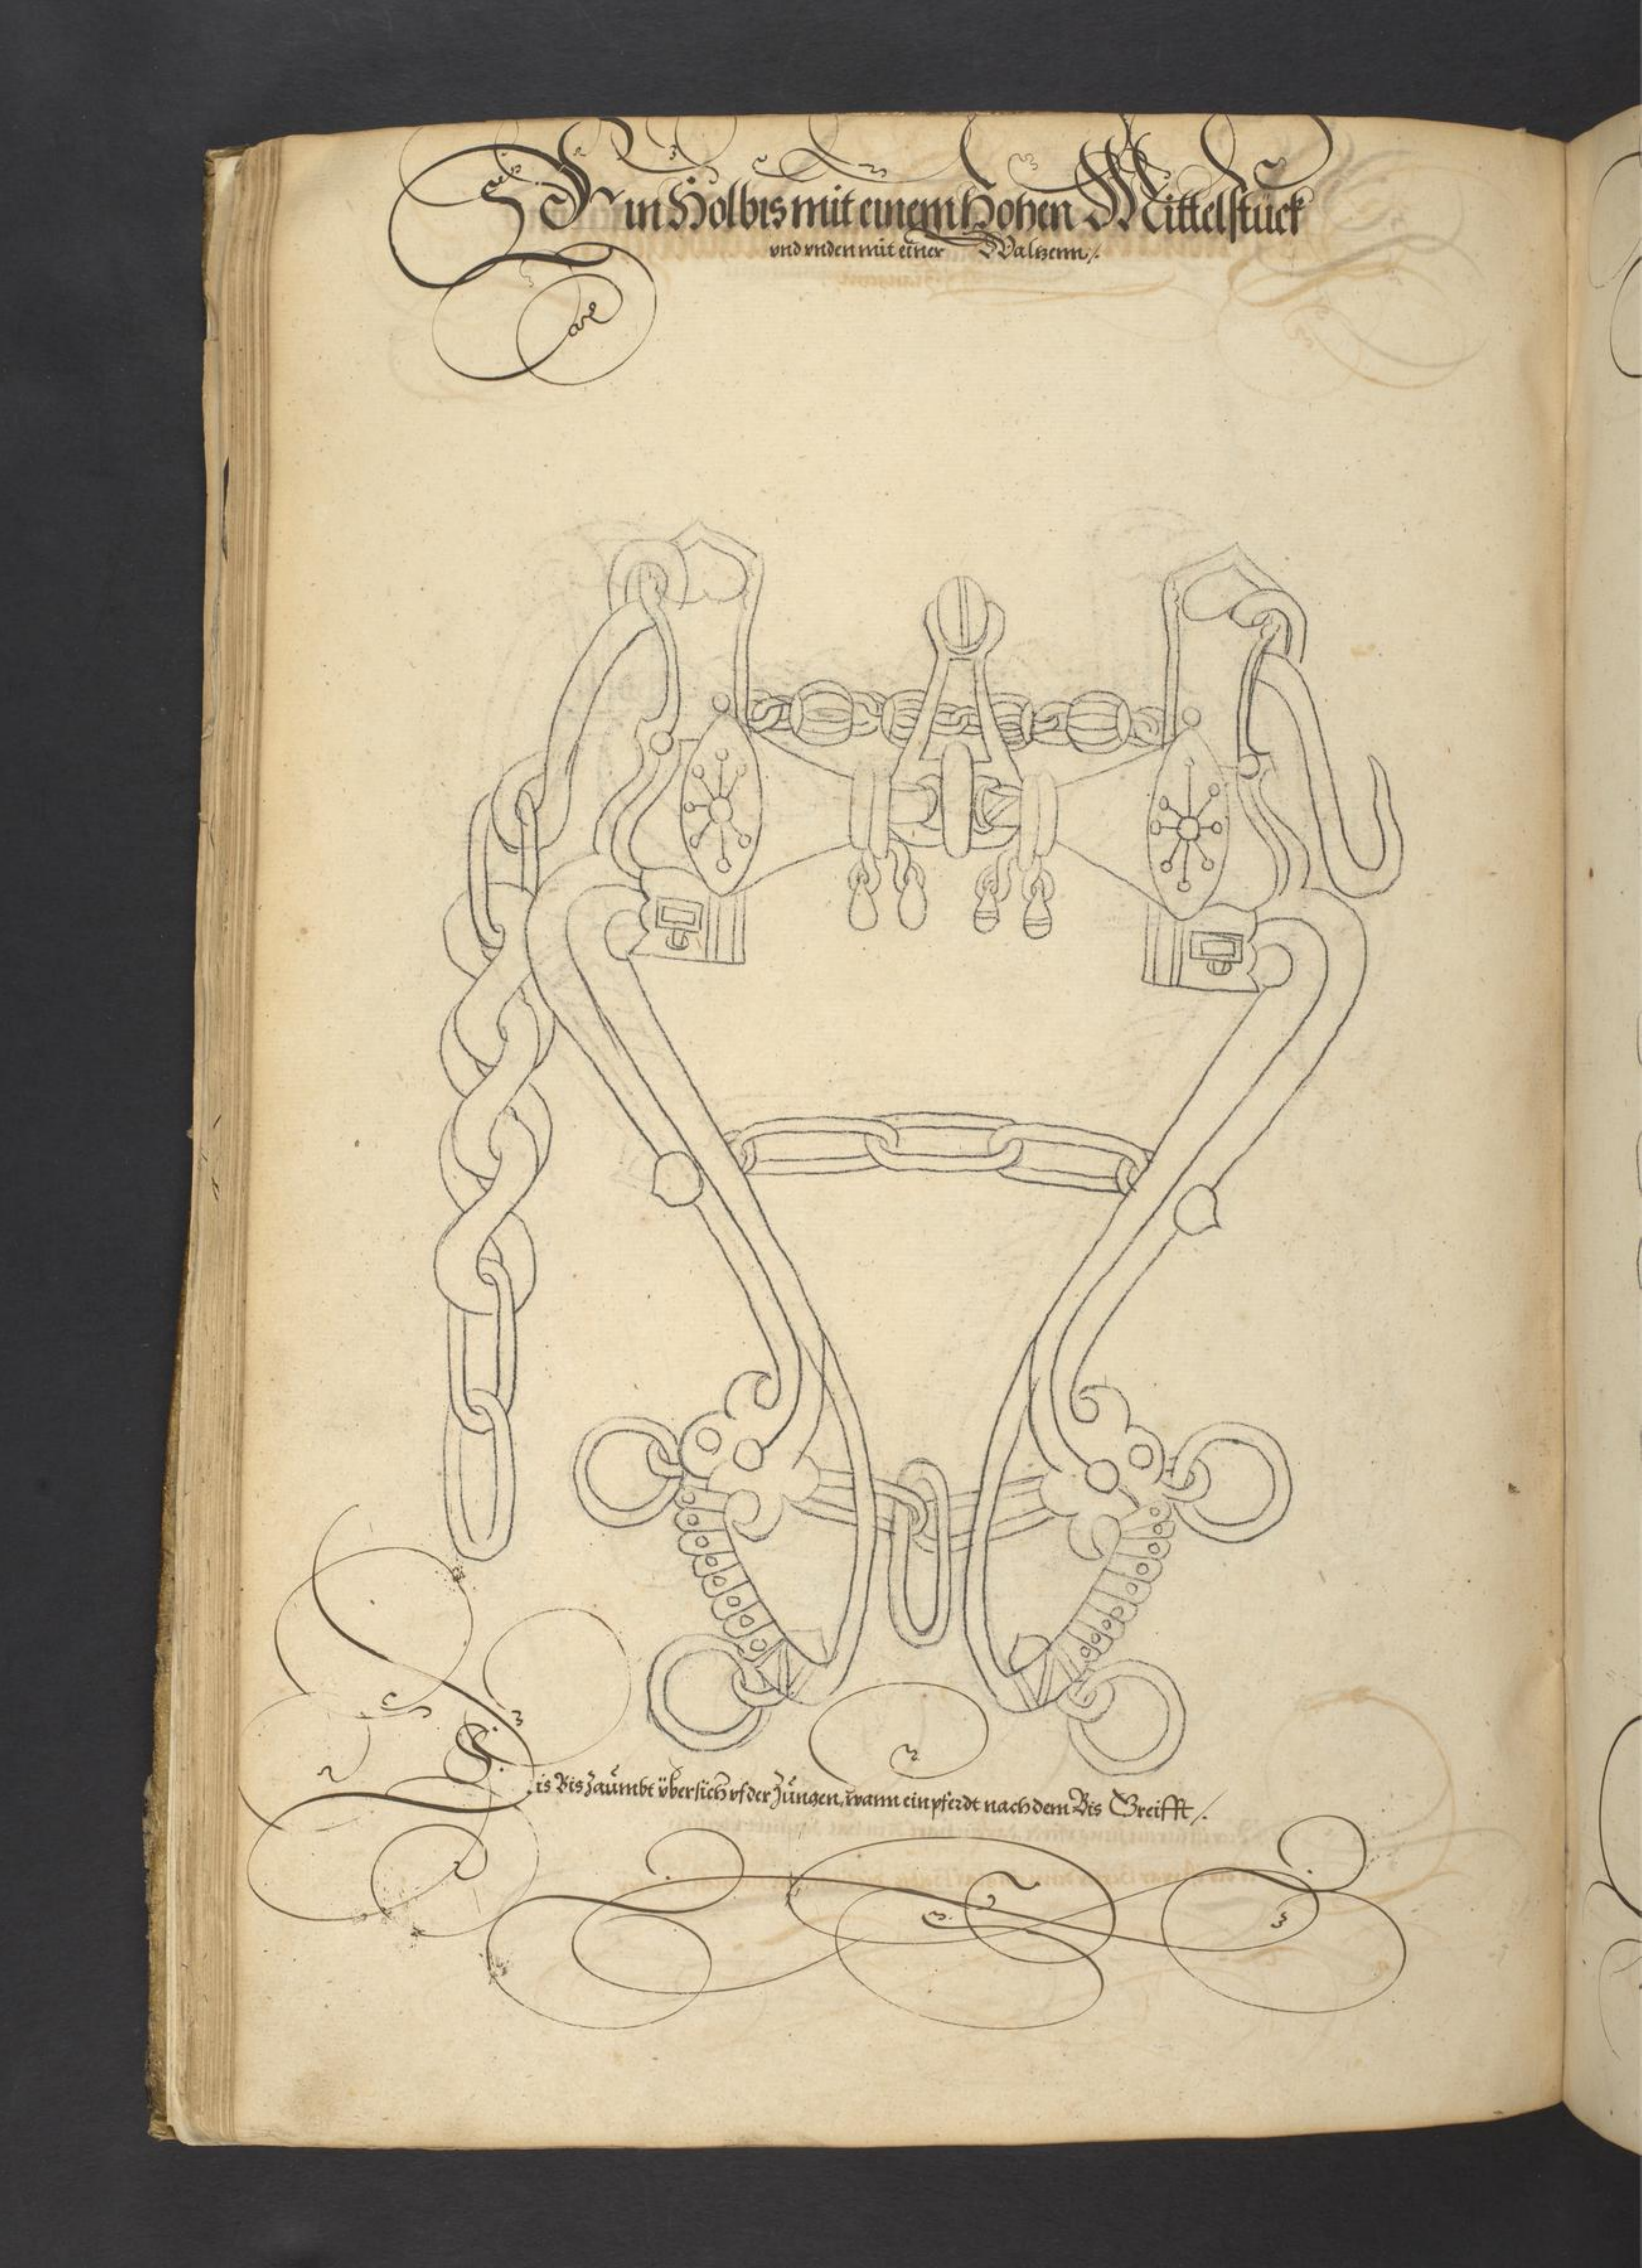 Ein Holbis mit einem Hohen Mittelstück
vnd vnden mit einer Waltzenn /.
Dis Bis Zaümbt übersich vf der Züngen, wann ein pferdt nach dem Bis Greifft /.